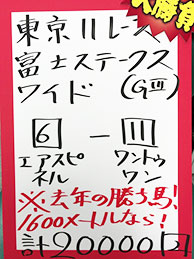 大勝負
東京11レース
富士ステークス
ワイド (GIII)
6 - 11
エアスピネル ワントゥワン
※去年の勝ち馬!
1600メートルなら!
計20000円